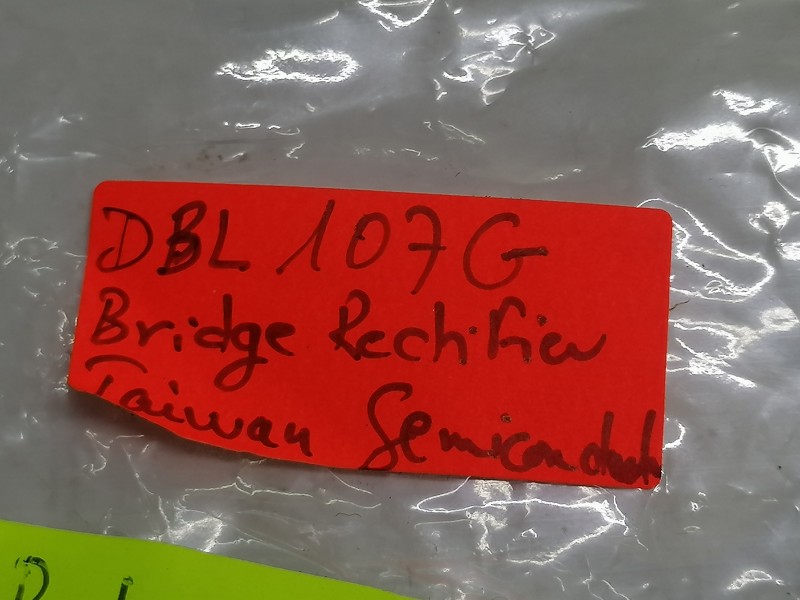 DBL 107G
Bridge Rectifier
Taiwan Semiconductor